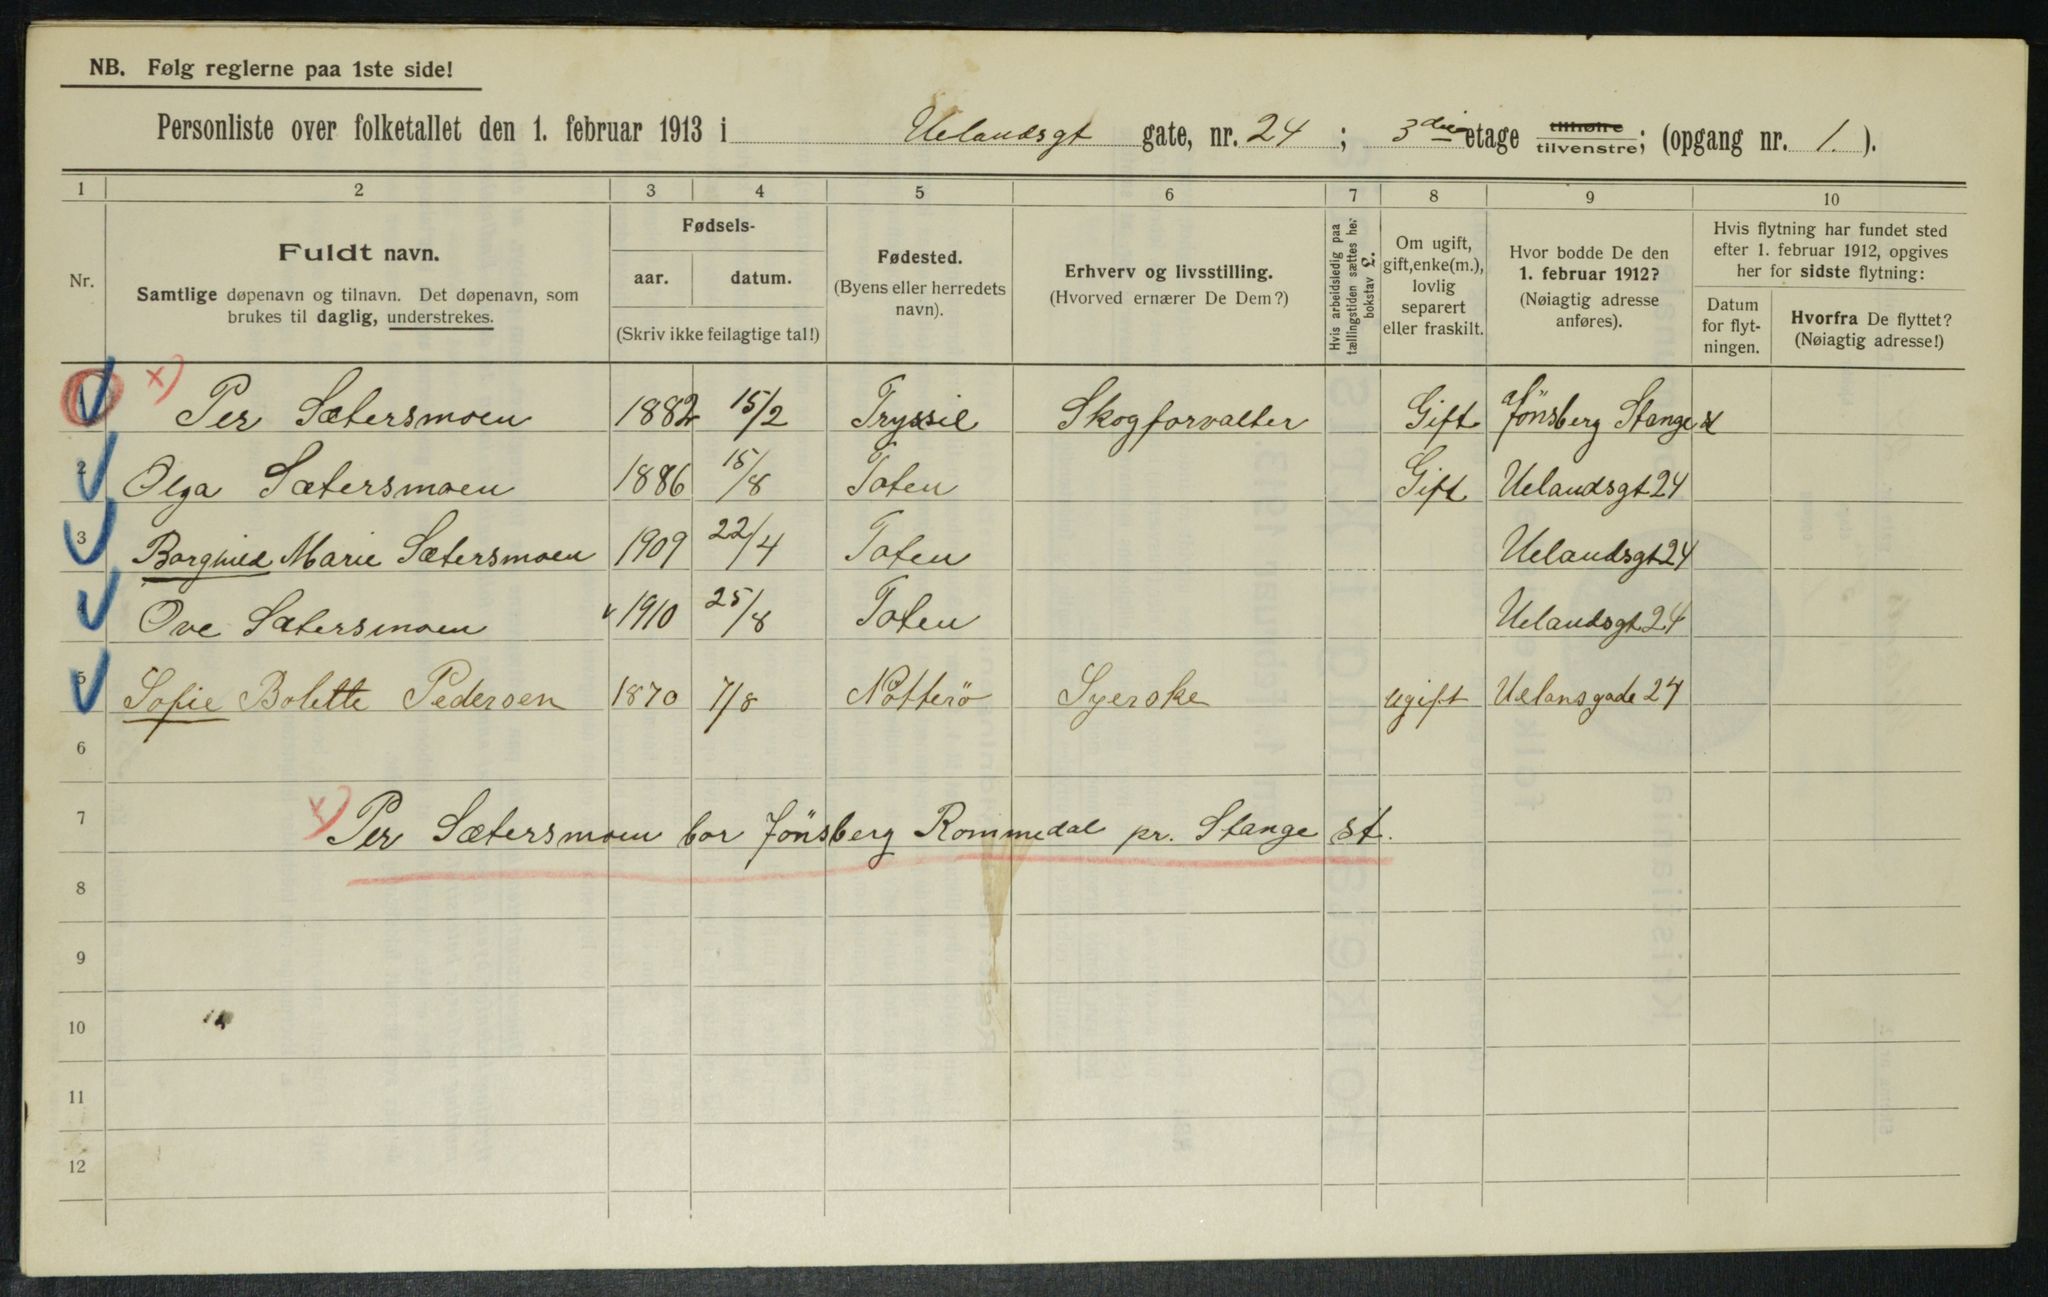 NB. Følg reglerne paa 1ste side!
Personliste over folketallet den 1. februar 1913 i Uelandsgt gate, nr. 24 ; 3die etage tilhøire tilvenstre; (opgang nr. 1. ).
1 2 3 4 5 6 7 8 9 10
Nr.
Fuldt navn.
Samtlige døpenavn og tilnavn. Det døpenavn, som
brukes til daglig, understrekes.
Fødsels-
aar. datum.
(Skriv ikke feilagtige tal!)
Fødested.
(Byens eller herredets
navn).
Erhverv og livsstilling.
(Hvorved ernærer De Dem?)
Hvis arbeidsledig paa
tællingstiden sættes her
bokstav £.
Om ugift,
gift, enke(m.),
lovlig
separert
eller fraskilt.
Hvor bodde De den
1. februar 1912?
(Nøiagtig adresse
anføres).
Hvis flytning har fundet sted
efter 1. februar 1912, opgives
her for sidste flytning:
Datum
for flyt-
ningen.
Hvorfra De flyttet?
(Nøiagtig adresse!)
1 x) Per Sætersmoen 1882 15/2 Tryssil Skogforvalter Gift Jönsberg Stange
2 Olga Sætersmoen 1886 15/8 Toten Gift Uelandsgt 24
3 Borghild Marie Sætersmoen 1909 22/4 Toten Uelandsgt 24
4 Ove Sætersmoen 1910 25/8 Toten Uelandsgt 24
5 Sofie Bolette Pedersen 1870 7/8 Nøtterö Syerske Ugift Uelansgade 24
6
7 x) Per Sætersmoen bor Jönsberg Rommedal pr. Stange st.
8
9
10
11
12